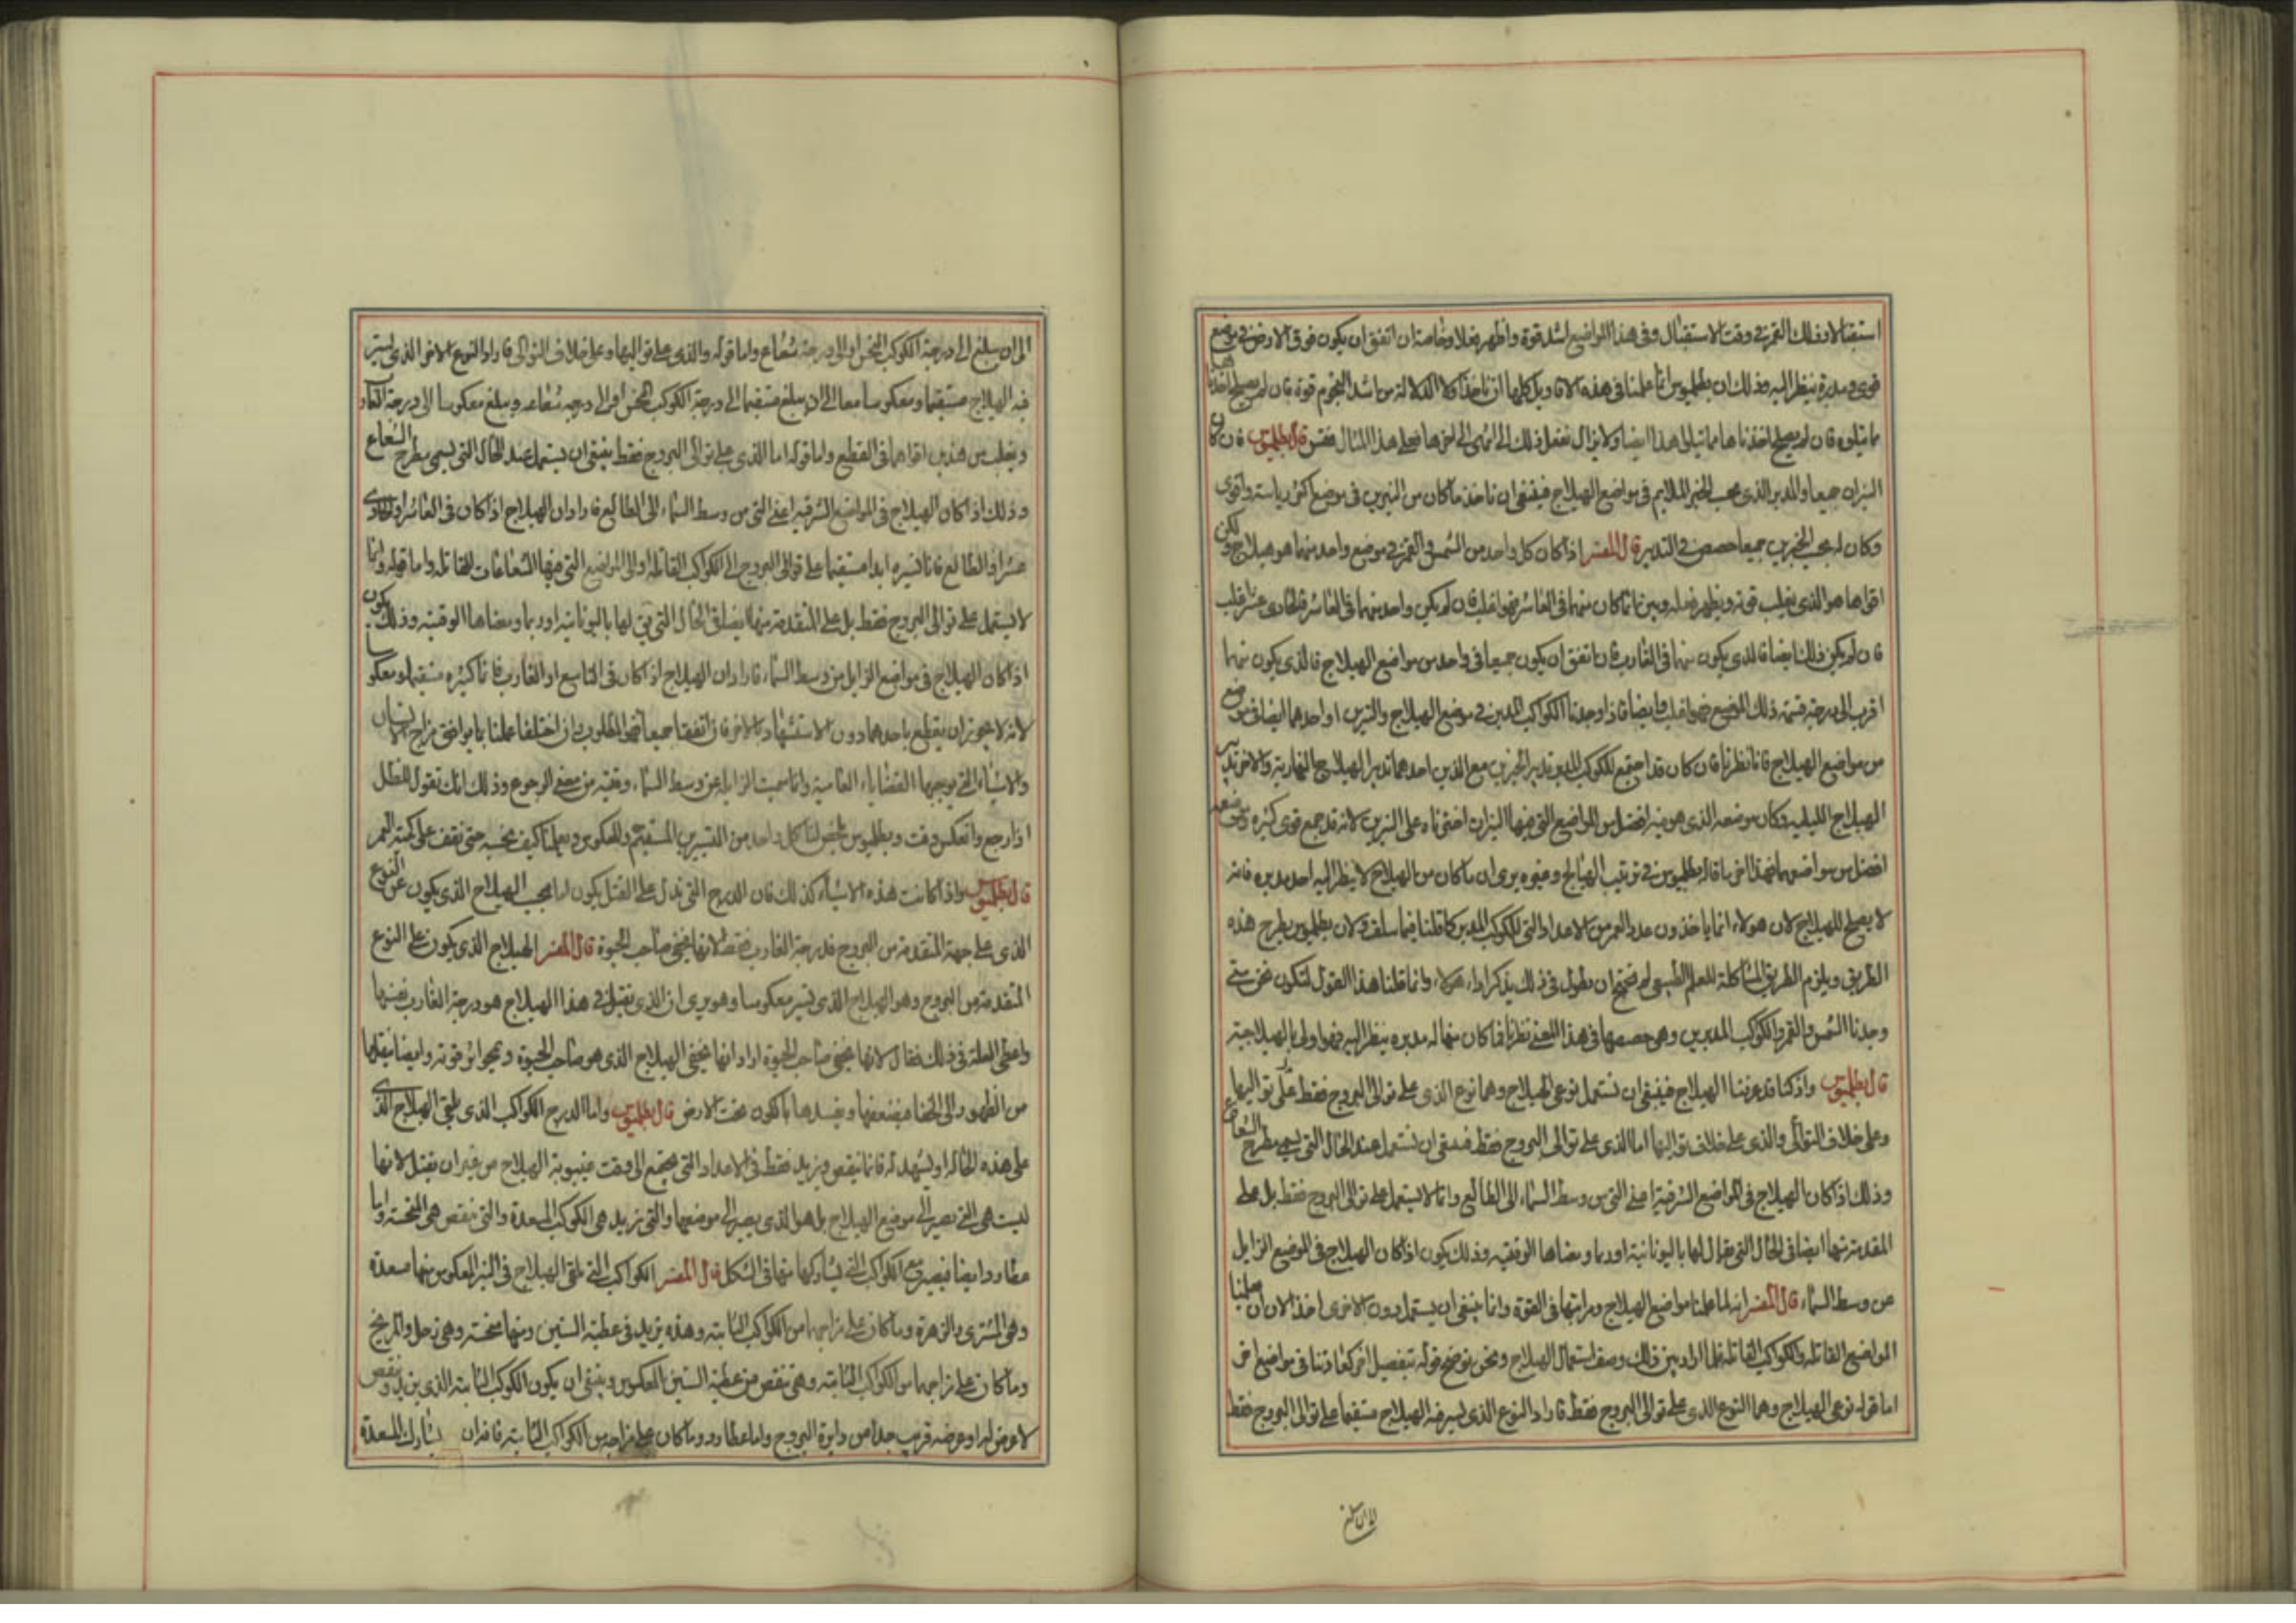 استقبالا وفلك القمر في وقت الاستقبال وفي هذا المواضيع اشد قوة واظهر فعلا وخاصة ان اتفق ان يكون فوق الارض في موضع
قوى ومدبره ينظر اليه وذلك ان بطلميوس انما علمنا في هذه الاقاويل كلها ان ناخذ اولا الدلالة من اشد النجوم قوة فان لم يصلح اخذنا
ما يتلوه فان لم يصلح اخذناها مما يتلوا هذا ايضا ولا يزال نفعل ذلك الى انتهى الى اخرها فعلى هذا المثال فقس قال بطلميوس فان كان
النيران جميعا والمدبر الذي بحسب الخير الملايم في مواضع الهيلاج فينبغي ان ناخذ ما كان من النيرين في موضع اكثر رياسة واقوى
وكان له بحسب الخيرين جميعا حصص في التدبير قال المفسر اذا كان كل واحد من الشمس والقمر في موضع واحد منهما هو هيلاج ولكن
اقواها هو الذي يغلب قوته ويظهر فعله وبين ان ما كان منهما في العاشر فهو اغلب فان لم يكن واحد منهما في العاشر فالحادى عشر فاغلب
فان لم يكن ذلك ايضا فالذي يكون منهما في الغارب فان اتفق ان يكون جميعا في واحد من مواضع الهيلاج فالذي يكون منهما
اقرب الى درجة قسمة ذلك الموضع فهو اغلب وايضا فاذا وجدنا الكواكب المدبرين في موضع الهيلاج والنيرين او احدهما ايضا في موضع
من مواضع الهيلاج فانا نظرنا فان كان قد اجتمع للكوكب المدبر تدبير الخيرين مع الذين احدهما تدبير الهيلاج النهارية والاخر تدبير
الهيلاج الليلية وكان موضعه الذي هو فيه افضل من المواضع التي فيها النيران اخترناه على النيرين لانه قد جمع قوى كثيرة وموضعه
افضل من مواضعهما فهذا اخر ما قاله بطلميوس في ترتيب الهيالج وغيره يرى ان ما كان من الهيلاج لا ينظر اليه احد مدبره فانه
لا يصلح للهيلاج لان هولاء انما ياخذون عدد العمر من الاعداد التي للكوكب المدبر كما قلنا فيما سلف ولان بطلميوس يطرح هذه
الطريق ويلزم الطريق المشاكلة للعلم الطبيعي لم يحتج ان يطول في ذلك بذكر اراء هولاء وانما قلنا هذا القول لنكون نحن متى
وجدنا الشمس والقمر والكوكب المدبرين وهي حصصها في هذا المعنى نظرنا فما كان منها له مدبره ينظر اليه فهو اولى بالهيلاجية
قال بطلميوس واذ كنا قد عرفنا الهيلاج فينبغي ان نستعمل نوعى الهيلاج وهما نوع الذي على توالى البروج فقط على تواليها
وعلى خلاف التوالي والذي على خلاف تواليها اما الذي على توالى البروج فقط فينبغي ان نستعمل عند الحال التي يسمى مطرح الشعاع
وذلك اذا كان الهيلاج في المواضع الشرقية اعنى التي من وسط السماء الى الطالع وانما لا يستعمل على توالى البروج فقط بل على
المتقدمة منها ايضا في الحال التي يقال لها باليونانية اوديما ومعناها الوقتيه وذلك يكون اذا كان الهيلاج في الموضع الزايل
عن وسط السماء قال المفسر انه لما علمنا مواضع الهيلاج ومراتبها في القوة وانما ينبغي ان يستعمل دون الاخرى اخذ الان ان يعلمنا
المواضع القاتلة والكواكب القاتلة فلما اراد بين ذلك وصف استعمال الهيلاج ونحن نوضح قوله بتفصيل اخر كعادتنا في مواضع اخر
اما قوله نوعى الهيلاج وهما النوع الذي على توالى البروج فقط فاراد النوع الذي يسير فيه الهيلاج مستقيما على توالى البروج فقط
الى ان يبلغ
الى ان يبلغ الى درجة الكوكب النحس او الى درجة شعاع واما قوله والذي على تواليها وعلى خلاف التوالى فاراد النوع الاخر الذي يسير
فيه الهيلاج مستقيما ومعكوسا معا الى ان يبلغ مستقيما الى درجة الكوكب النحس او الى درجة شعاعه ويبلغ معكوسا الى درجة الغارب
ويغلب من هذين اقواهما في القطع واما قوله اما الذي على توالى البروج فقط ينبغي ان يستعمل عند الحال التي يسمى مطرح الشعاع
وذلك اذا كان الهيلاج في المواضع الشرقية اعنى التي من وسط السماء الى الطالع فاراد ان الهيلاج اذا كان في العاشر او الحادى
عشر او الطالع فانا نسيره ابدا مستقيما على توالى البروج الى الكواكب القاتلة او الى المواضع التي فيها الشعاعات القاتلة واما قوله وانما
لا يستعمل على توالى البروج فقط بل على المتقدمة منها ايضا في الحال التي يقال لها باليونانية اوديما ومعناها الوقتيه وذلك يكون
اذا كان الهيلاج في مواضع الزايل من وسط السماء فاراد ان الهيلاج اذا كان في التاسع او الغارب فانا نسيره مستقيما ومعكوسا
لانه لا يجوز ان يقطع باحدهما دون الاستشهاد بالاخر فان اتفقا جميعا فهو المطلوب وان اختلفا علمنا بما يوافق مزاج الانسان
والاشياء التي يوجبها القضاياء العامية وانما سميت الزايل عن وسط السماء وقتيه من معنى الرجوع وذلك انك تقول للظل
اذا رجع وانعكس وقت وبطلميوس يلخص لنا كل واحد من التسييرين المستقيم والمعكوس ويعلمنا كيف نحسبه حتى نقف على كمية العمر
قال بطلميوس واذا كانت هذه الاشياء كذلك فان الدرج التي تدل على القتل يكون اما بحسب الهيلاج الذي يكون على النوع
الذي على جهة المتقدمة من البروج فدرجة الغارب فقط لانها تخفى صاحب الحيوة قال المفسر الهيلاج الذي يكون على النوع
المتقدمة من البروج وهو الهيلاج الذي يسير معكوسا وهو يرى ان الذي يقتل في هذا الهيلاج هو درجة الغارب نفسها
واعطى العلة في ذلك فقال لانها تخفى صاحب الحيوة اراد انها تخفى الهيلاج الذي هو صاحب الحيوة وتمحوا اثر قوته وايضا ينقلها
من الظهور الى الخفا فيضعفها ويفسدها بالكون تحت الارض قال بطلميوس واما الدرج الكواكب الذي يلقى الهيلاج الذي
على هذه الحالة او يشهد له فانما ينقص ويزيد فقط في الاعداد التي يجتمع الى وقت غيبوبة الهيلاج من غير ان يقتل لانها
ليست هي التي تصير الى موضع الهيلاج بل هو الذي يصير الى موضعها والتي تزيد هي الكواكب المسعدة والتي تنقص هي المنحسة واما
عطارد ايضا فيصير مع الكواكب التي يشاركها منها في الشكل قال المفسر الكواكب التي تلقى الهيلاج في السير المعكوس منها مسعدة
وهي المشترى والزهرة وما كان على مزاجهما من الكواكب الثابتة وهذه تزيد في عطية السنين ومنها منحسة وهي زحل والمريخ
وما كان على مزاجهما من الكواكب الثابتة وهي تنقص من عطية السنين بالمعكوس وينبغي ان يكون الكوكب الثابته الذي يزيد وينقص
لا عرض له او عرضه قريب جدا من دايرة البروج واما عطارد وما كان على مزاجه من الكواكب الثابتة فانه ان يشارك المسعدة